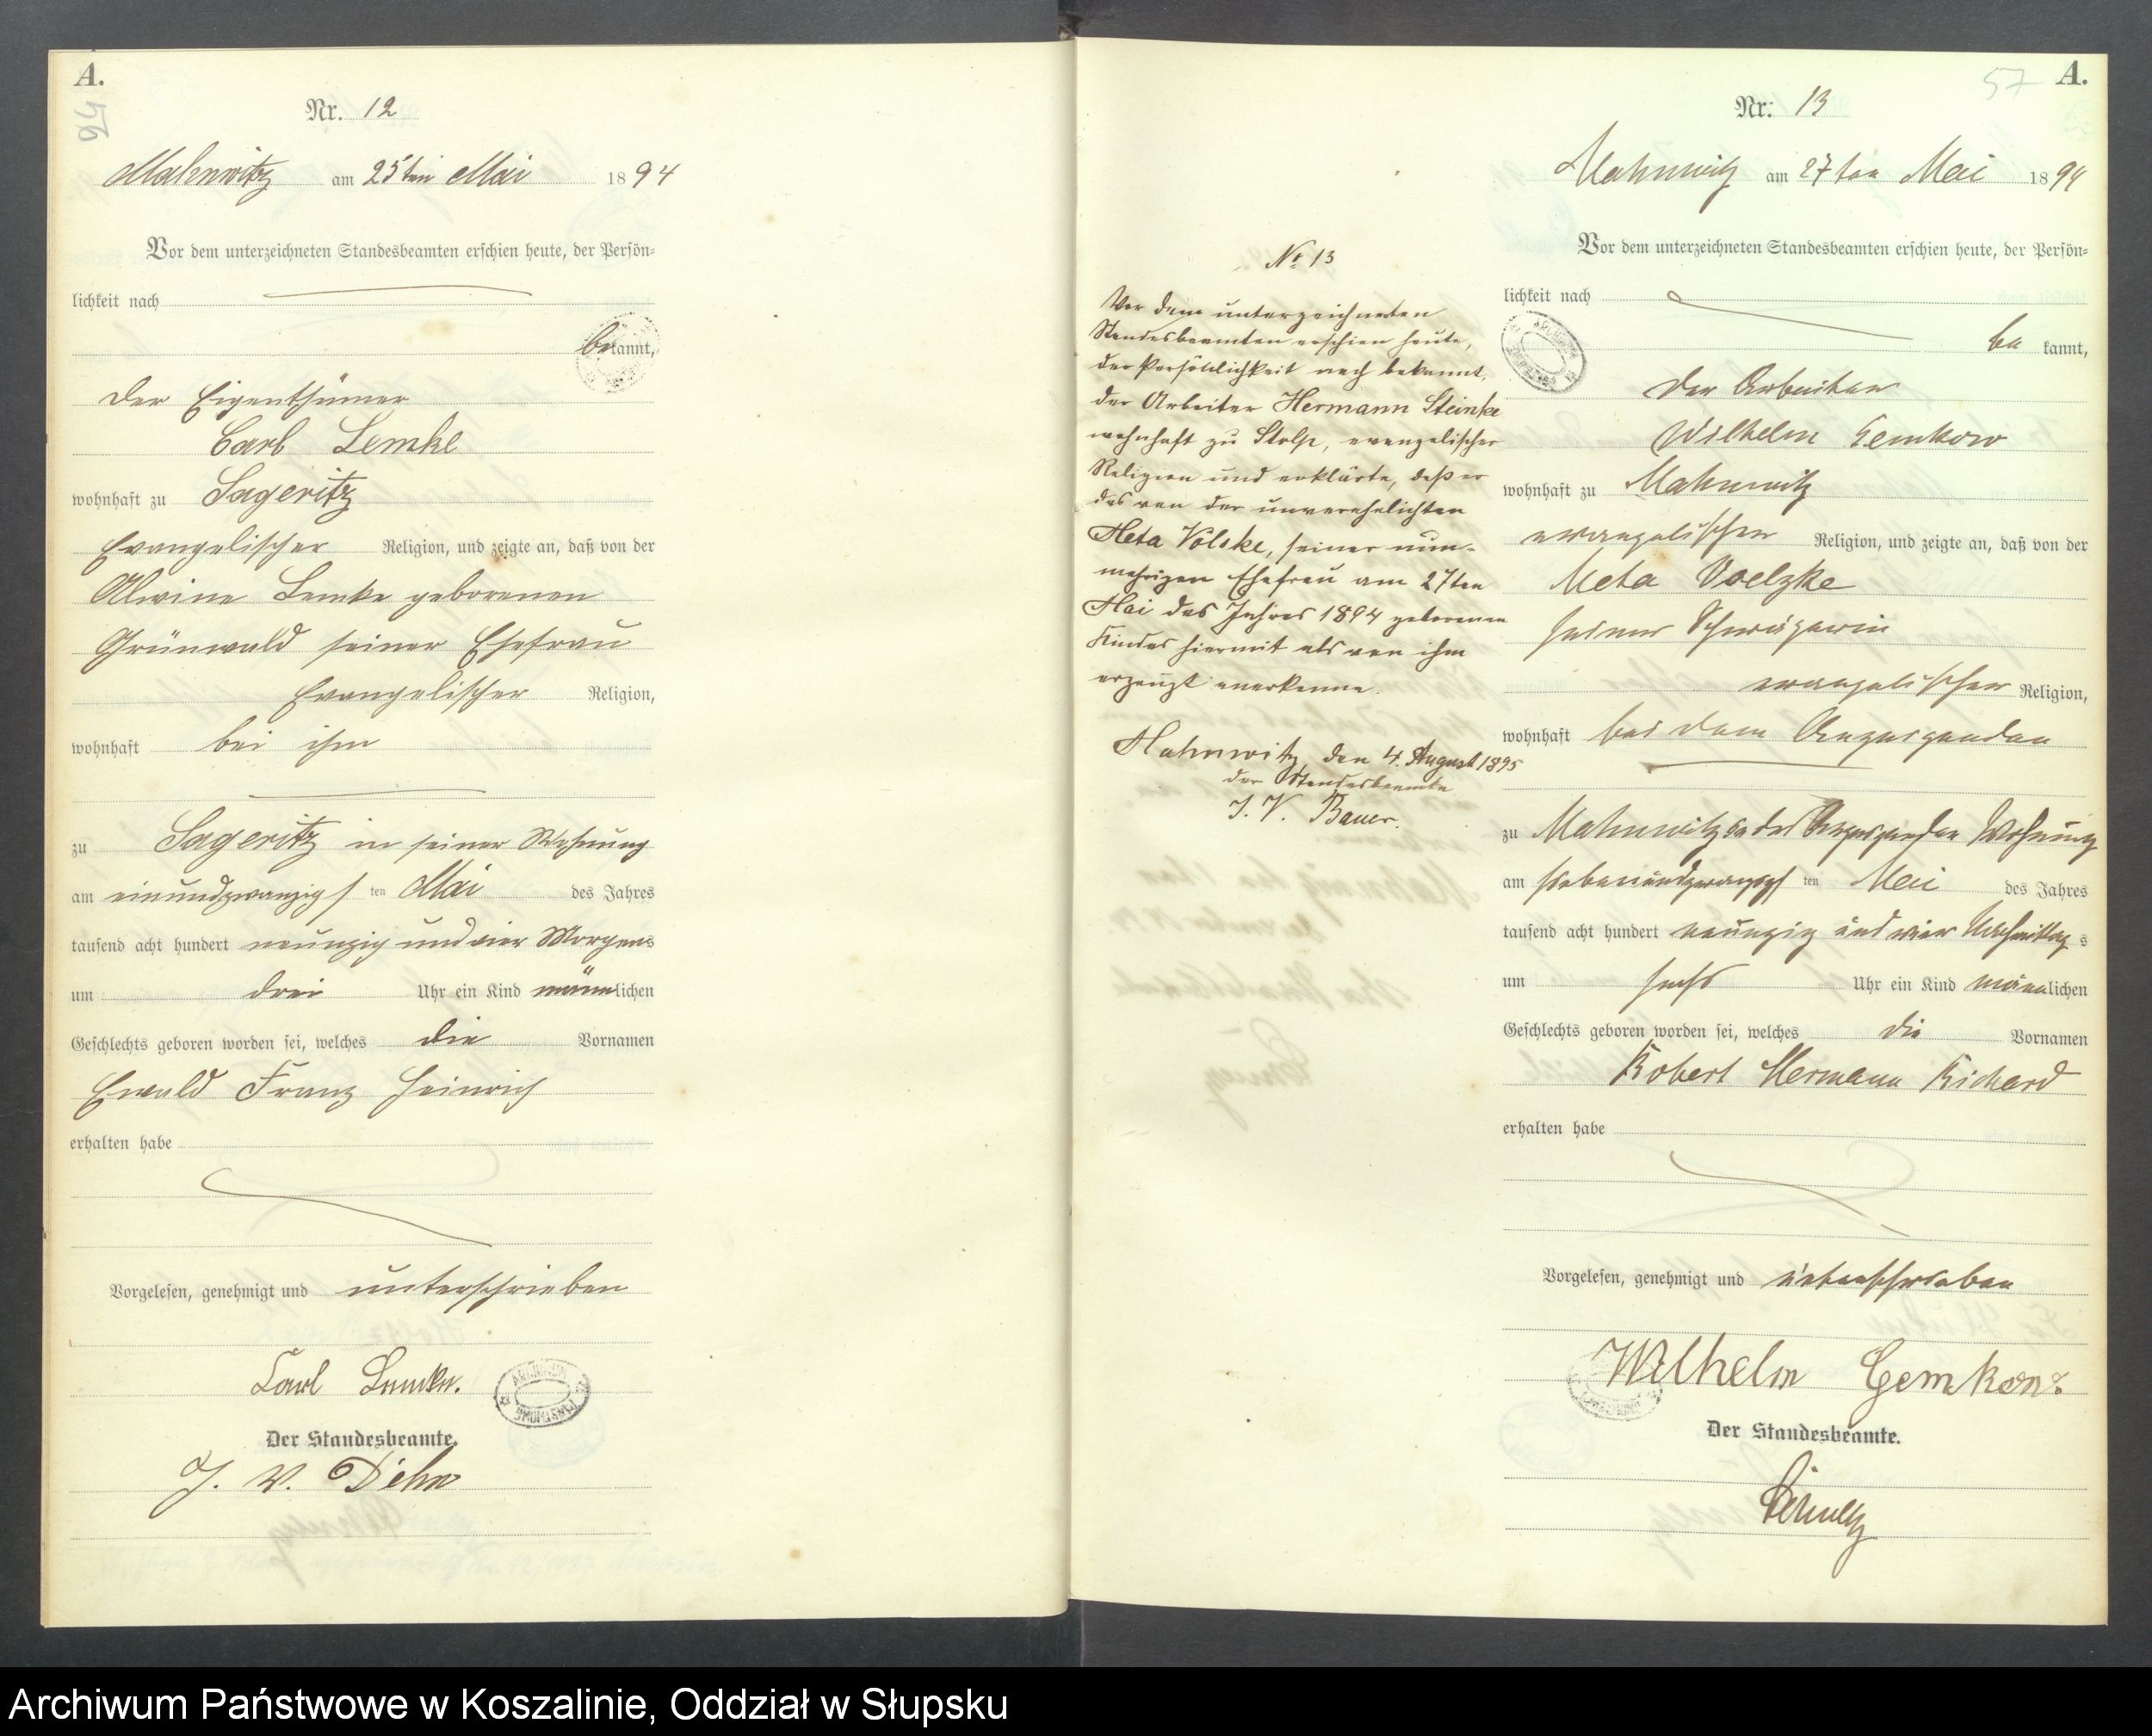 A.
56
Nr. 12
Mahnwitz am 25ten Mai 1894
Vor dem unterzeichneten Standesbeamten erschien heute, der Persön-
lichkeit nach
bekannt,
der Eigenthümer
Carl Lemke
wohnhaft zu Sageritz
Evangelischer Religion, und zeigte an, daß von der
Alwine Lemke geborenen
Grünwald seiner Ehefrau
Evangelischer Religion,
wohnhaft bei ihm
zu Sageritz in seiner Wohnung
am einundzwanzigsten Mai des Jahres
tausend acht hundert neunzig und vier Morgens
um drei Uhr ein Kind männlichen
Geschlechts geboren worden sei, welches die Vornamen
Ewald Franz Heinrich
erhalten habe
Vorgelesen, genehmigt und unterschrieben
Carl Lemke.
Der Standesbeamte.
J. V. Dehn
No 13
Vor dem unterzeichneten
Standesbeamten erschien heute,
der Persönlichkeit nach bekannt,
der Arbeiter Hermann Steinke
wohnhaft zu Stolp, evangelischer
Religion und erklärte, daß er
das von der unverehelichten
Meta Völske, seiner nun-
mehrigen Ehefrau am 27ten
Mai des Jahres 1894 geborenen
Kindes hiermit als von ihm
erzeugt anerkenne.
Mahnwitz, den 4. August 1895
der Standesbeamte
J. V. Bauer.
57
A.
Nr. 13
Mahnwitz am 27ten Mai 1894
Vor dem unterzeichneten Standesbeamten erschien heute, der Persön-
lichkeit nach
bekannt,
der Arbeiter
Wilhelm Gemkow
wohnhaft zu Mahnwitz
evangelischer Religion, und zeigte an, daß von der
Meta Voelzke
seiner Schwägerin
evangelischer Religion,
wohnhaft bei dem Anzeigenden
zu Mahnwitz in des Anzeigenden Wohnung
am siebenundzwanzigsten Mai des Jahres
tausend acht hundert neunzig und vier Nachmittags
um sechs Uhr ein Kind männlichen
Geschlechts geboren worden sei, welches die Vornamen
Robert Hermann Richard
erhalten habe
Vorgelesen, genehmigt und unterschrieben
Wilhelm Gemkow
Der Standesbeamte.
Schultz
Archiwum Państwowe w Koszalinie, Oddział w Słupsku